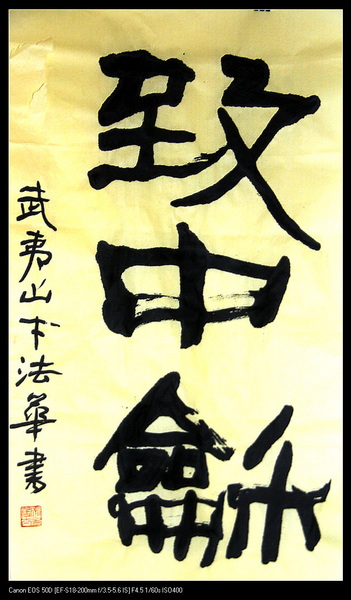 致中龢
武夷山下法華書
Canon EOS 50D [EF-S18-200mm f/3.5-5.6 IS] F4.5 1/60s ISO400